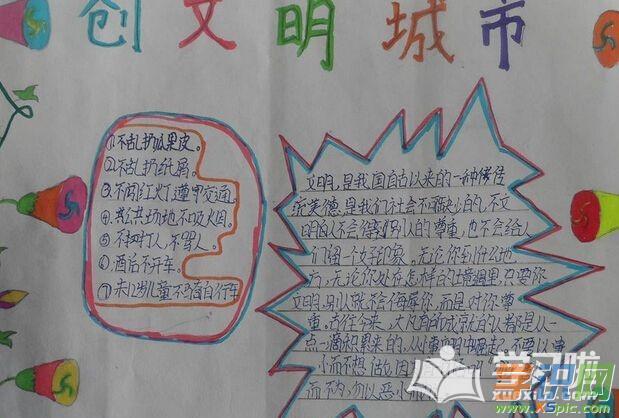 创文明城市
①不乱扔瓜果皮。
②不乱扔纸屑。
③不闯红灯,遵守交通。
④公共场地不吸烟。
⑤不打人,不骂人。
⑥酒后不开车。
⑦未12岁儿童不骑自行车
文明,是我国自古以来的一种传
统美德,是我们社会不可缺少的,不文
明的人不会得到别人的尊重,也不会给人
们留一个好印象。无论你到什么地
方,无论你处在怎样的环境里,只要你
文明,别人就不会侮辱你,而是对你尊
重,古往今来,大凡有所成就的人都是从一
点一滴积累来的,从小事中崛起。不要以
小而不
而为,勿以恶小
学习啦
xuexila.com
学科网
X5pic.com